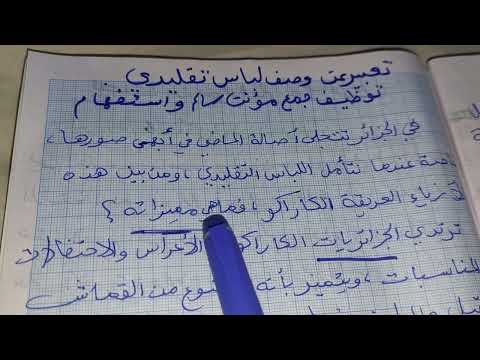 تعبير عن وصف لباس تقليدي
توظيف جمع مؤنث سالم واستفهام
في الجزائر تتجلى أصالة الماضي في أبهى صورها،
عندما نتأمل اللباس التقليدي، ومن بين هذه
العريقة الكاراكو، فما هي مميزاته؟
ترتدي الجزائريات الكاراكو الأعراس والاحتفالات
المناسبات، ويتميز بأنه من القماش